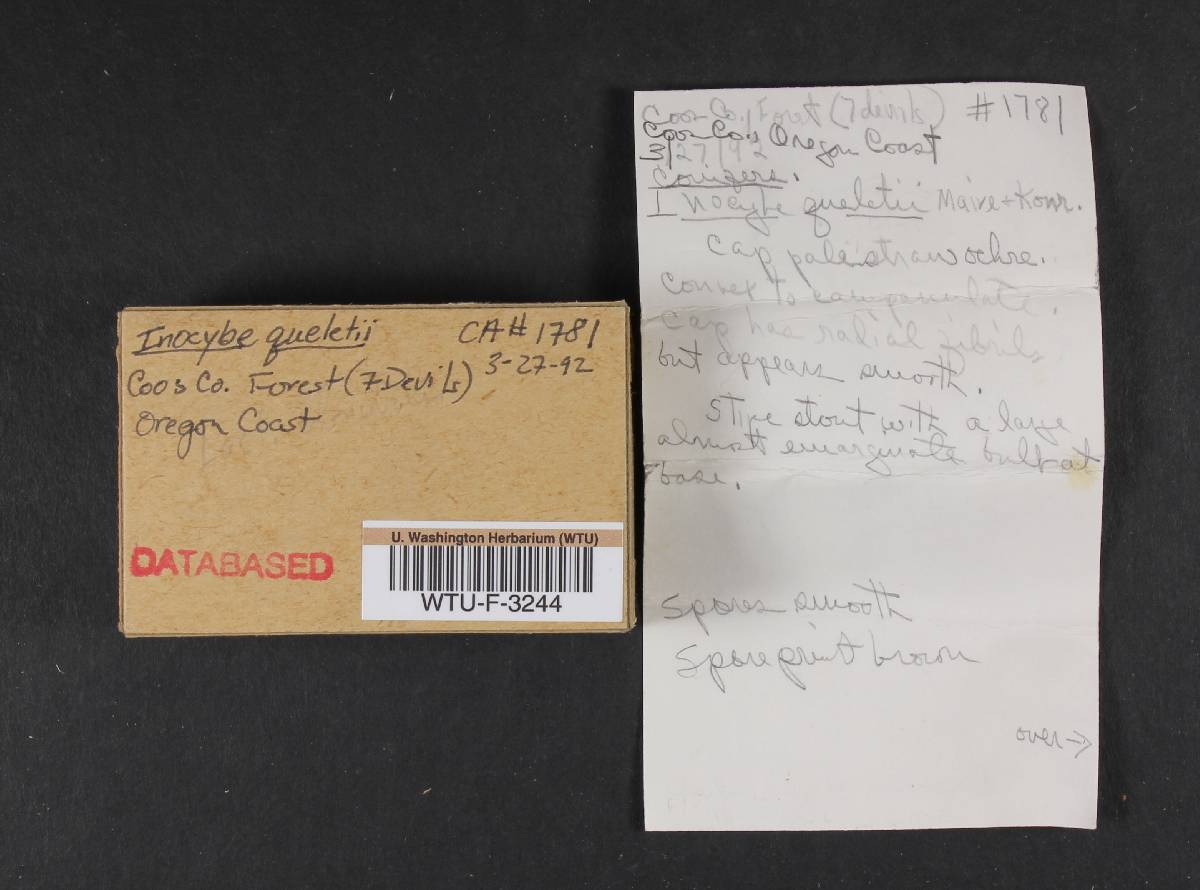 Inocybe queletii CA# 1781
3-27-92
Coos Co. Forest (7 Devils)
Oregon Coast
DATABASED
U. Washington Herbarium (WTU)
WTU-F-3244
Coos Co., Forest (7 devils) #1781
Coos Co., Oregon Coast
3/27/92
Conifers.
Inocybe queletii Maire + Konr.
Cap pale straw ochre.
Convex to campanulate.
Cap has radial fibrils
but appears smooth.
Stipe stout with a large
almost emarginate bulb at
base.
Spores smooth
Spore print brown
over →